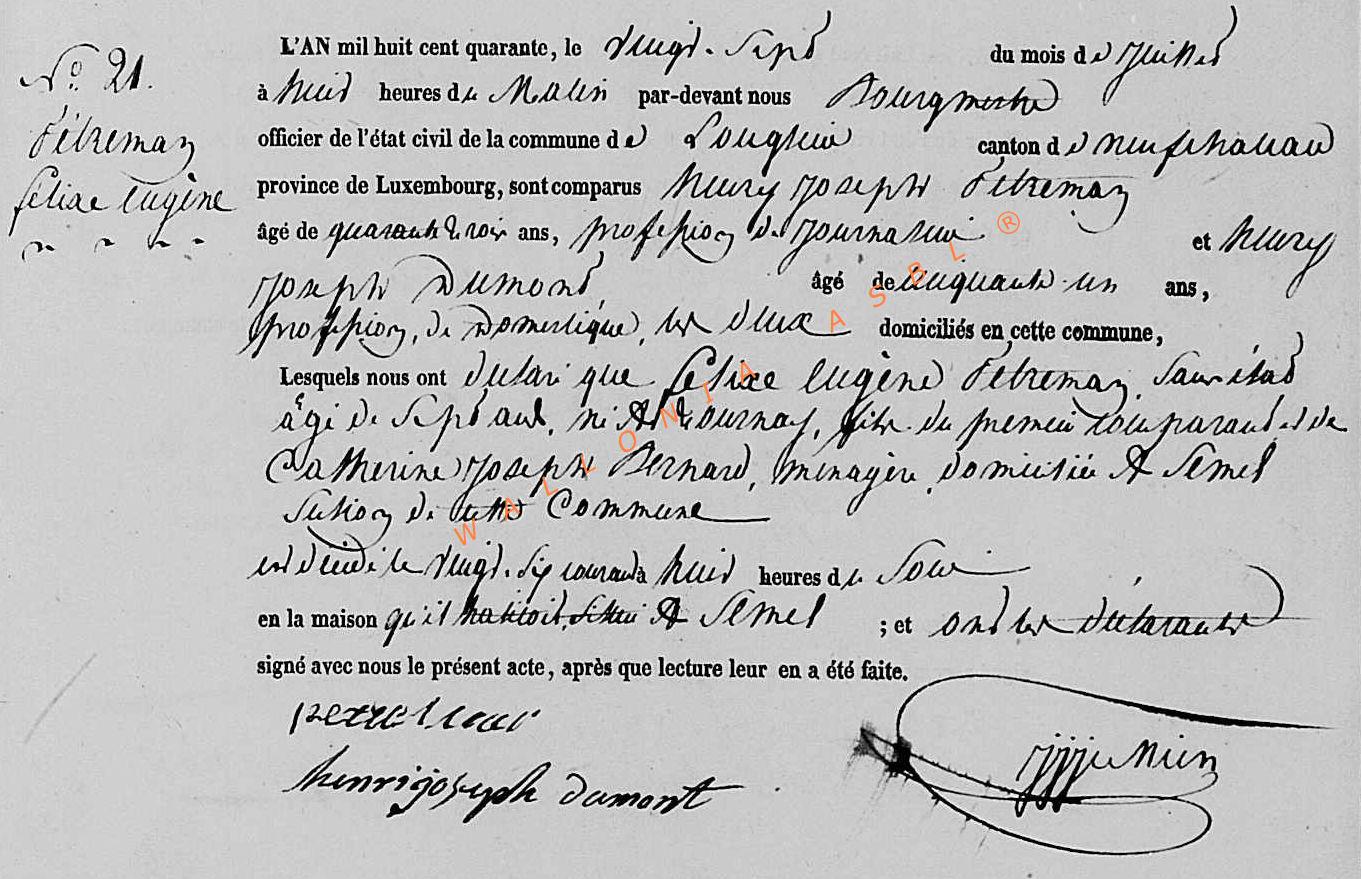 N.º 21.
Pétreman
félixe Eugène
L'AN mil huit cent quarante, le vingt-sept du mois de Juillet
à huit heures du Matin par-devant nous Bourgmestre
officier de l'état civil de la commune de Longlier canton de neufchateau
province de Luxembourg, sont comparus henry Joseph Pétreman
âgé de quarante trois ans, profession de Journalier et henry
Joseph Dumont, âgé de cinquante-un ans,
profession, de Domestique, les deux domiciliés en cette commune,
Lesquels nous ont déclaré que félixe Eugène Pétreman, Sans état
âgé de Sept ans, né A tournay, fils du premier comparant et de
Catherine Joseph Bernard, ménagère, domiciliée A Semel
Section de cette Commune
est décédé le vingt-six courant à huit heures du Soir
en la maison qu'il habitoit, A Semel ; et ont les déclarants
signé avec nous le présent acte, après que lecture leur en a été faite.
henrijoseph dumont
WALLONIA ASBL ®